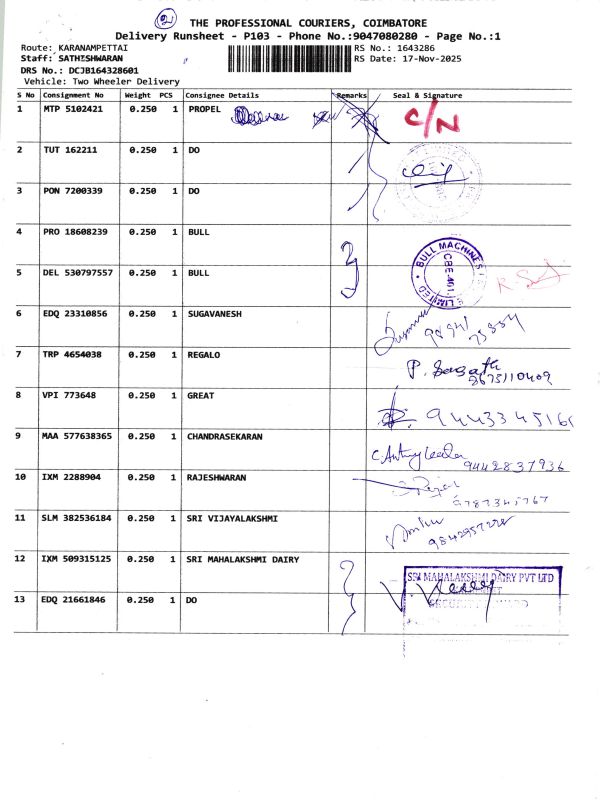 2
THE PROFESSIONAL COURIERS, COIMBATORE
Delivery Runsheet - P103 - Phone No.:9047080280 - Page No.:1
Route: KARANAMPETTAI RS No.: 1643286
Staff: SATHISHWARAN RS Date: 17-Nov-2025
DRS No.: DCJB164328601
Vehicle: Two Wheeler Delivery
S No Consignment No Weight PCS Consignee Details Remarks Seal & Signature
1 MTP 5102421 0.250 1 PROPEL C/N
2 TUT 162211 0.250 1 DO
3 PON 7200339 0.250 1 DO
4 PRO 18608239 0.250 1 BULL
BULL MACHINES LIMITED
5 DEL 530797557 0.250 1 BULL
6 EDQ 23310856 0.250 1 SUGAVANESH
7 TRP 4654038 0.250 1 REGALO
P. 8675110409
8 VPI 773648 0.250 1 GREAT
9443345166
9 MAA 577638365 0.250 1 CHANDRASEKARAN
9442837936
10 IXM 2288904 0.250 1 RAJESHWARAN
11 SLM 382536184 0.250 1 SRI VIJAYALAKSHMI
12 IXM 509315125 0.250 1 SRI MAHALAKSHMI DAIRY
SRI MAHALAKSHMI DAIRY PVT LTD
13 EDQ 21661846 0.250 1 DO